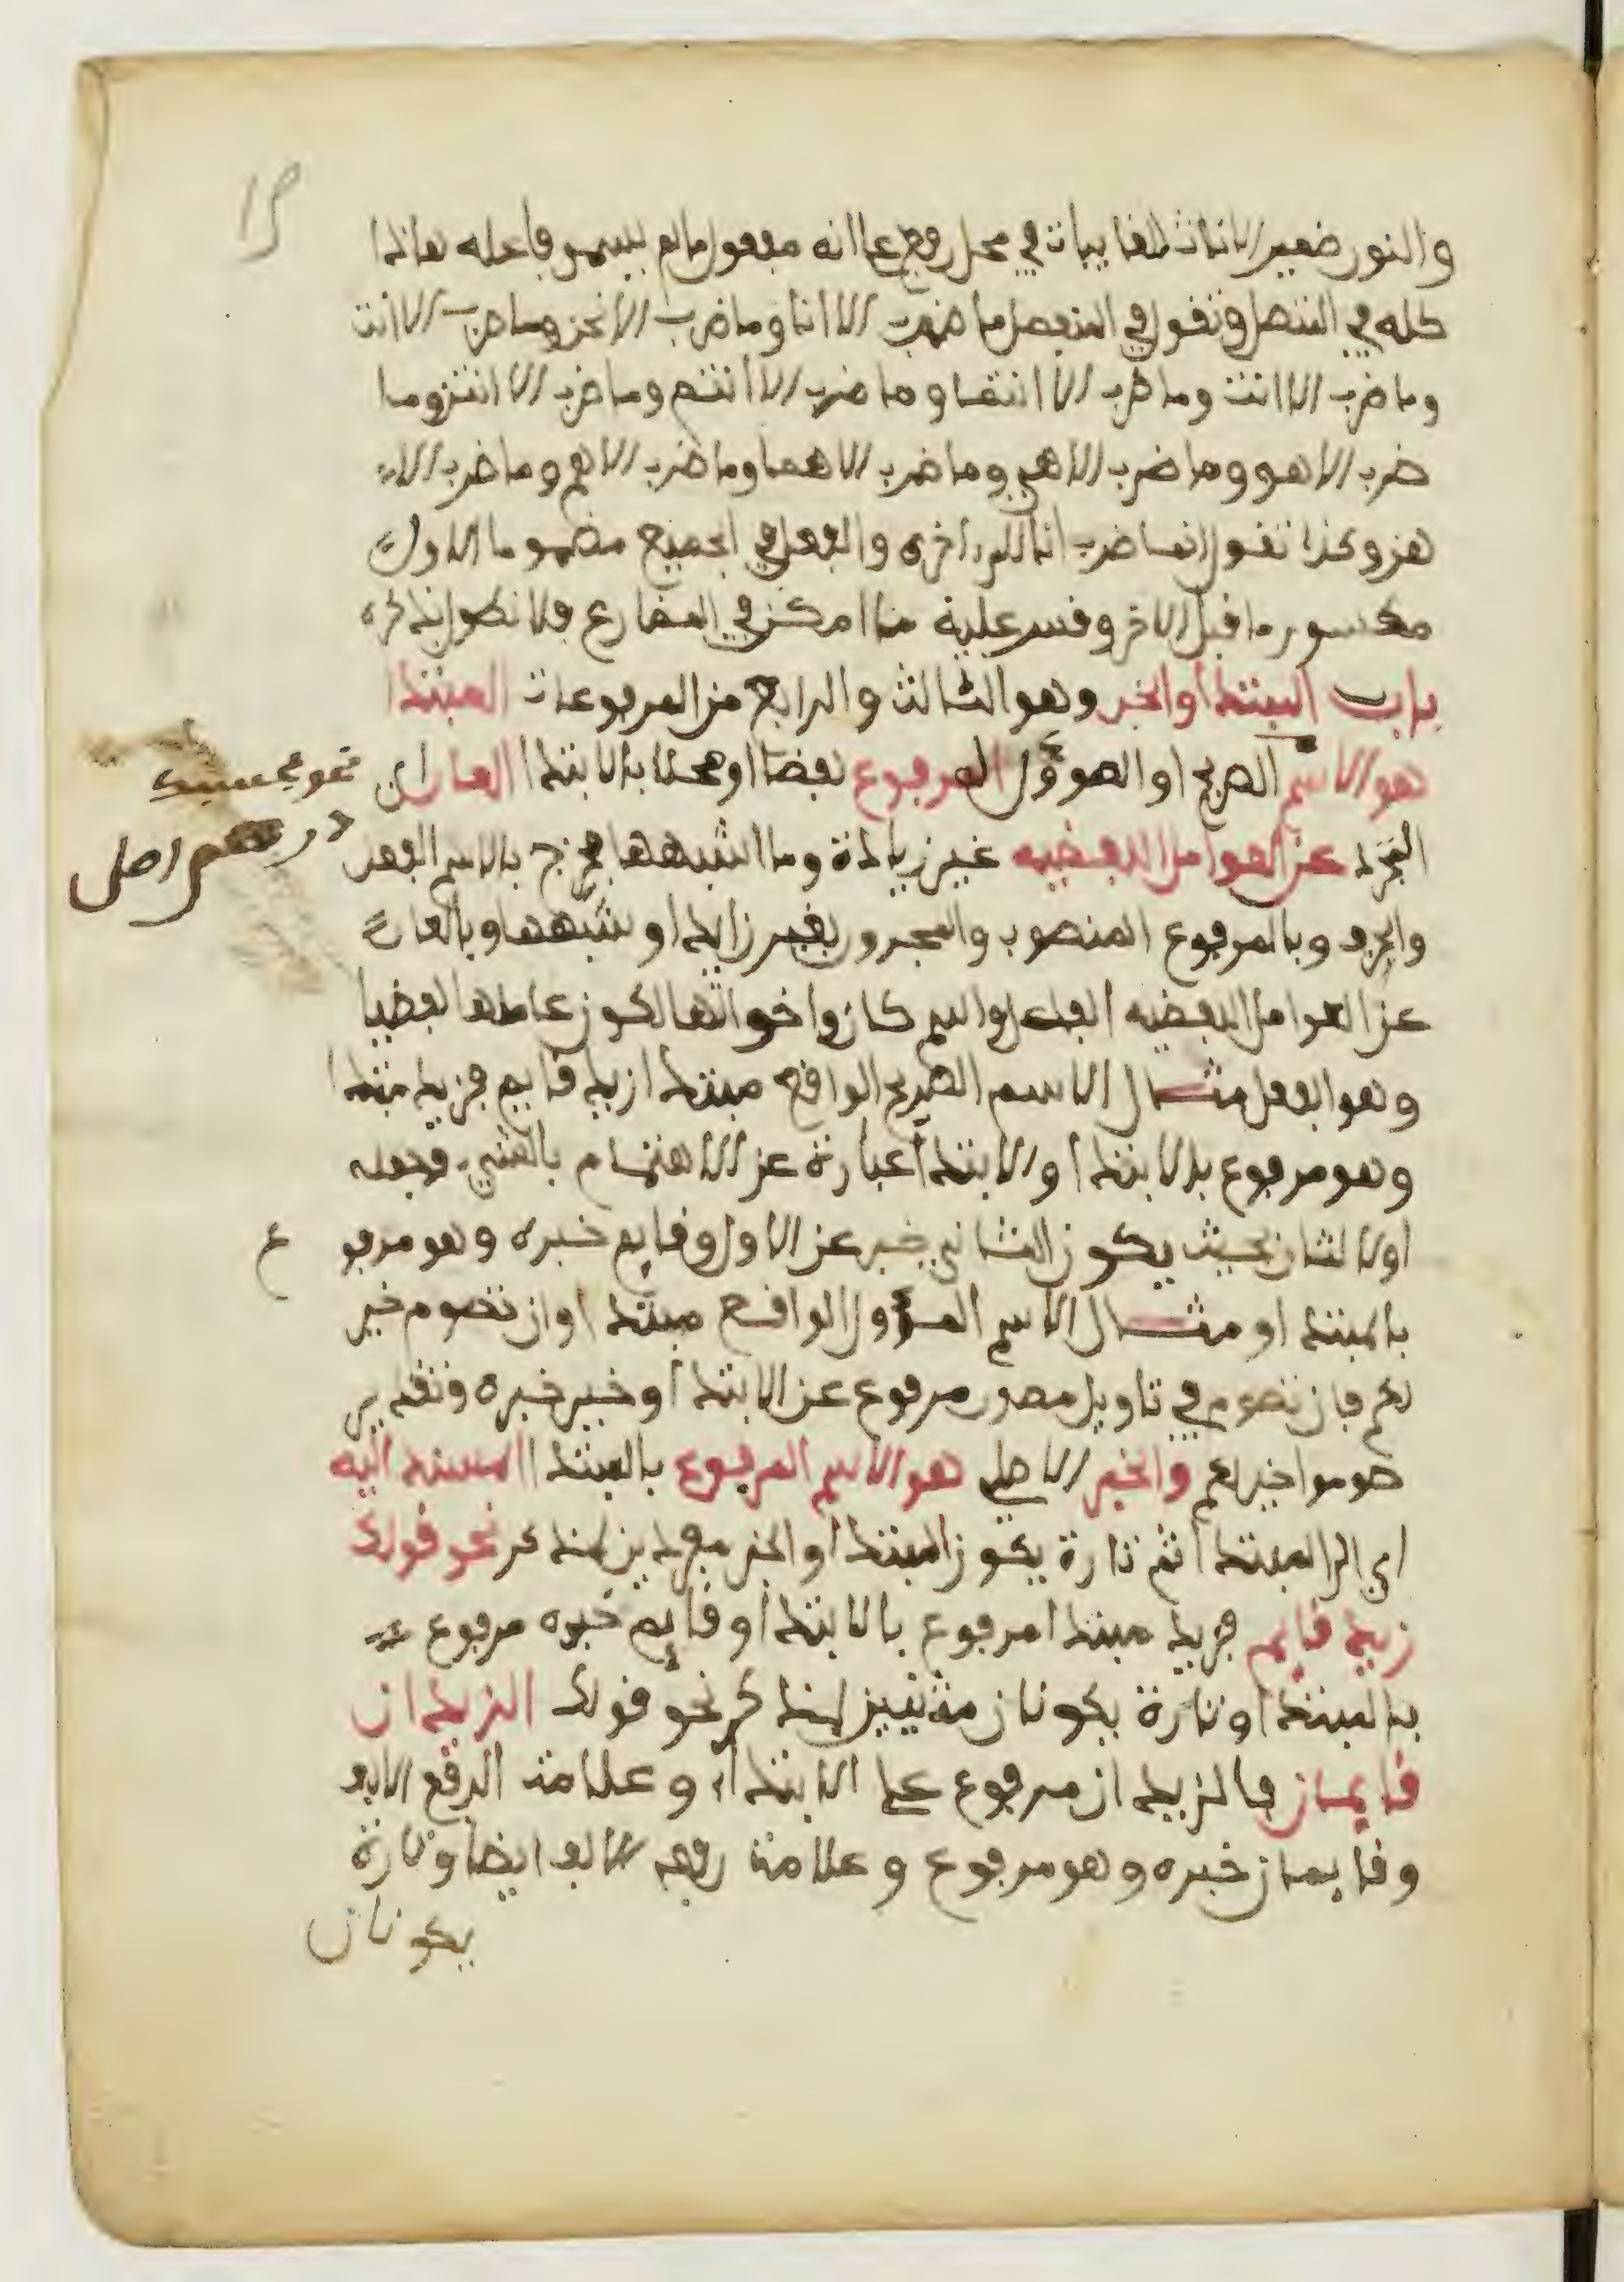 والنون ضمير الاناث الغايبات في محل رفع على انه مفعول ما لم يسم فاعله هاذا
كله في المتصل وتقول في المنفصل ما ضرب الا انا وما ضرب الا نحن وما ضرب الا انت
وما ضرب الا انت وما ضرب الا انتما وما ضرب الا انتم وما ضرب الا انتن وما
ضرب الا هو وما ضرب الا هي وما ضرب الا هما وما ضرب الا هم وما ضرب الا
هن وكذا تقول انما ضرب انا الى اخره والفعل في الجميع مضموما الاول
مكسور ما قبل الاخر وقس عليه ما امكن في المضارع فلا نطول بذكره
باب المبتدا والخبر وهو الثالث والرابع من المرفوعات المبتدا
هو الاسم الصريح او المؤول المرفوع لفظا او محلا بالابتدا العار اي
المجرد عن العوامل اللفظيه غير زيادة وما اشبهها فخرج بالاسم الفعل
والحرف وبالمرفوع المنصوب والمجرور بغير زايد او شبهها وبالعار
عن العوامل اللفظيه الفاعل واسم كان واخواتها لكون عاملها لفظيا
وهو الفعل مثال الاسم الصريح الواقع مبتدا زيد قايم فزيد مبتدا
وهو مرفوع بالابتدا والابتدا عبارة عن الاهتمام بالشيء وجعله
اولا لثان بحيث يكون الثاني خبر عن الاول وقايم خبره وهو مرفو ع
بالمبتدا ومثال الاسم المؤول الواقع مبتدا وان تصوم خير
لكم فان تصوم في تاويل مصدر مرفوع عن الابتدا وخير خبره وتقدير
صوموا خير لكم والخبر الاصلي هو الاسم المرفوع بالمبتدا المسند اليه
اي الى المبتدا ثم تارة يكون المبتدا والخبر مفردين لمذكر نحو قولك
زيد قايم فزيد مبتدا مرفوع بالابتدا وقايم خبره مرفوع
بالمبتدا وتارة يكونان مثنيين لمذكر نحو قولك الزيدان
قايمان فالزيدان مرفوع على الابتداء وعلامة الرفع الالف
وقايمان خبره وهو مرفوع وعلامة رفعه الالف ايضا وتارة
يكونان